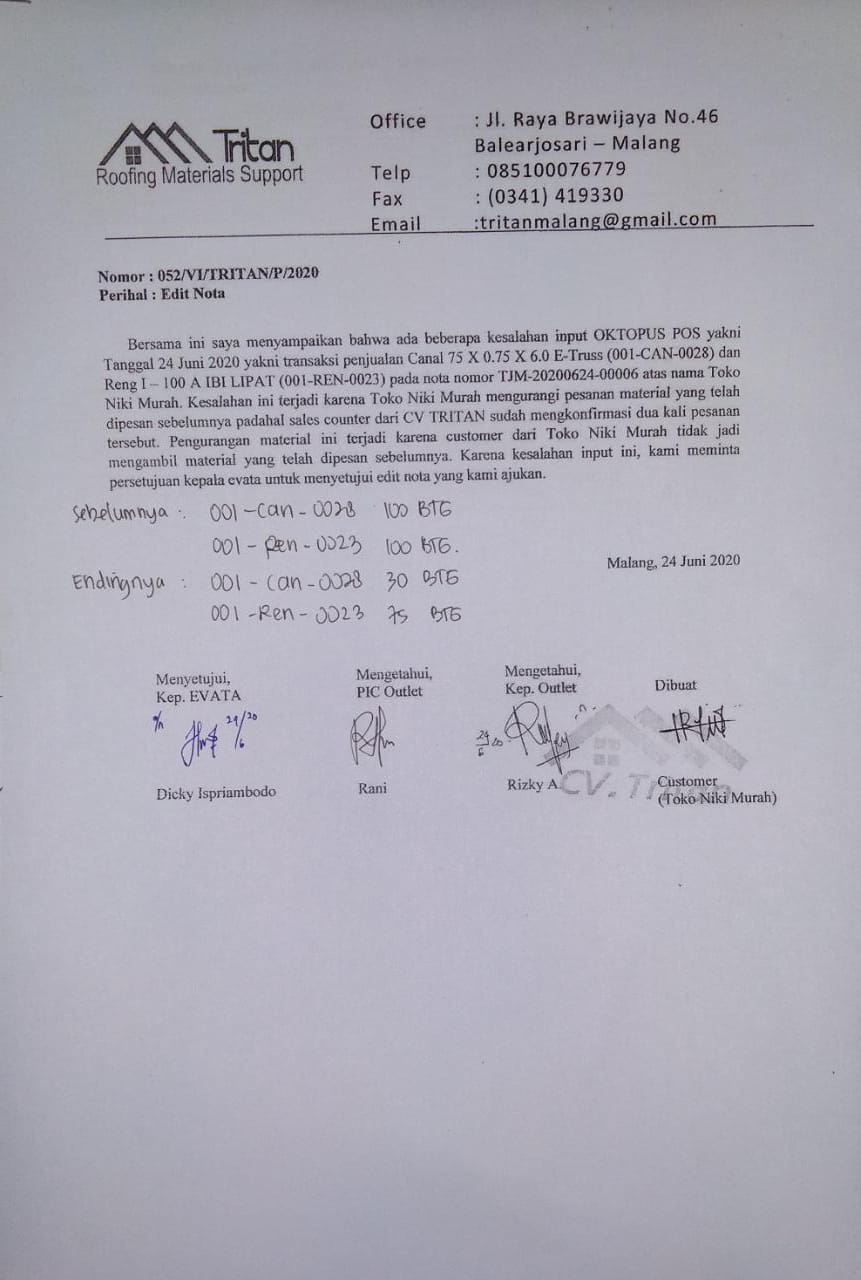 Tritan
Roofing Materials Support
Office : Jl. Raya Brawijaya No.46
Balearjosari – Malang
Telp : 085100076779
Fax : (0341) 419330
Email :tritanmalang@gmail.com
Nomor : 052/VI/TRITAN/P/2020
Perihal : Edit Nota
Bersama ini saya menyampaikan bahwa ada beberapa kesalahan input OKTOPUS POS yakni
Tanggal 24 Juni 2020 yakni transaksi penjualan Canal 75 X 0.75 X 6.0 E-Truss (001-CAN-0028) dan
Reng I – 100 A IBI LIPAT (001-REN-0023) pada nota nomor TJM-20200624-00006 atas nama Toko
Niki Murah. Kesalahan ini terjadi karena Toko Niki Murah mengurangi pesanan material yang telah
dipesan sebelumnya padahal sales counter dari CV TRITAN sudah mengkonfirmasi dua kali pesanan
tersebut. Pengurangan material ini terjadi karena customer dari Toko Niki Murah tidak jadi
mengambil material yang telah dipesan sebelumnya. Karena kesalahan input ini, kami meminta
persetujuan kepala evata untuk menyetujui edit nota yang kami ajukan.
Sebelumnya : 001-Can-0028 100 BTG
001-Ren-0023 100 BTG.
Malang, 24 Juni 2020
Endingnya : 001-Can-0028 30 BTG
001-Ren-0023 75 BTG
Menyetujui, Mengetahui, Mengetahui, Dibuat
Kep. EVATA PIC Outlet Kep. Outlet
Dicky Ispriambodo Rani Rizky A. Customer
(Toko Niki Murah)
CV. Tritan